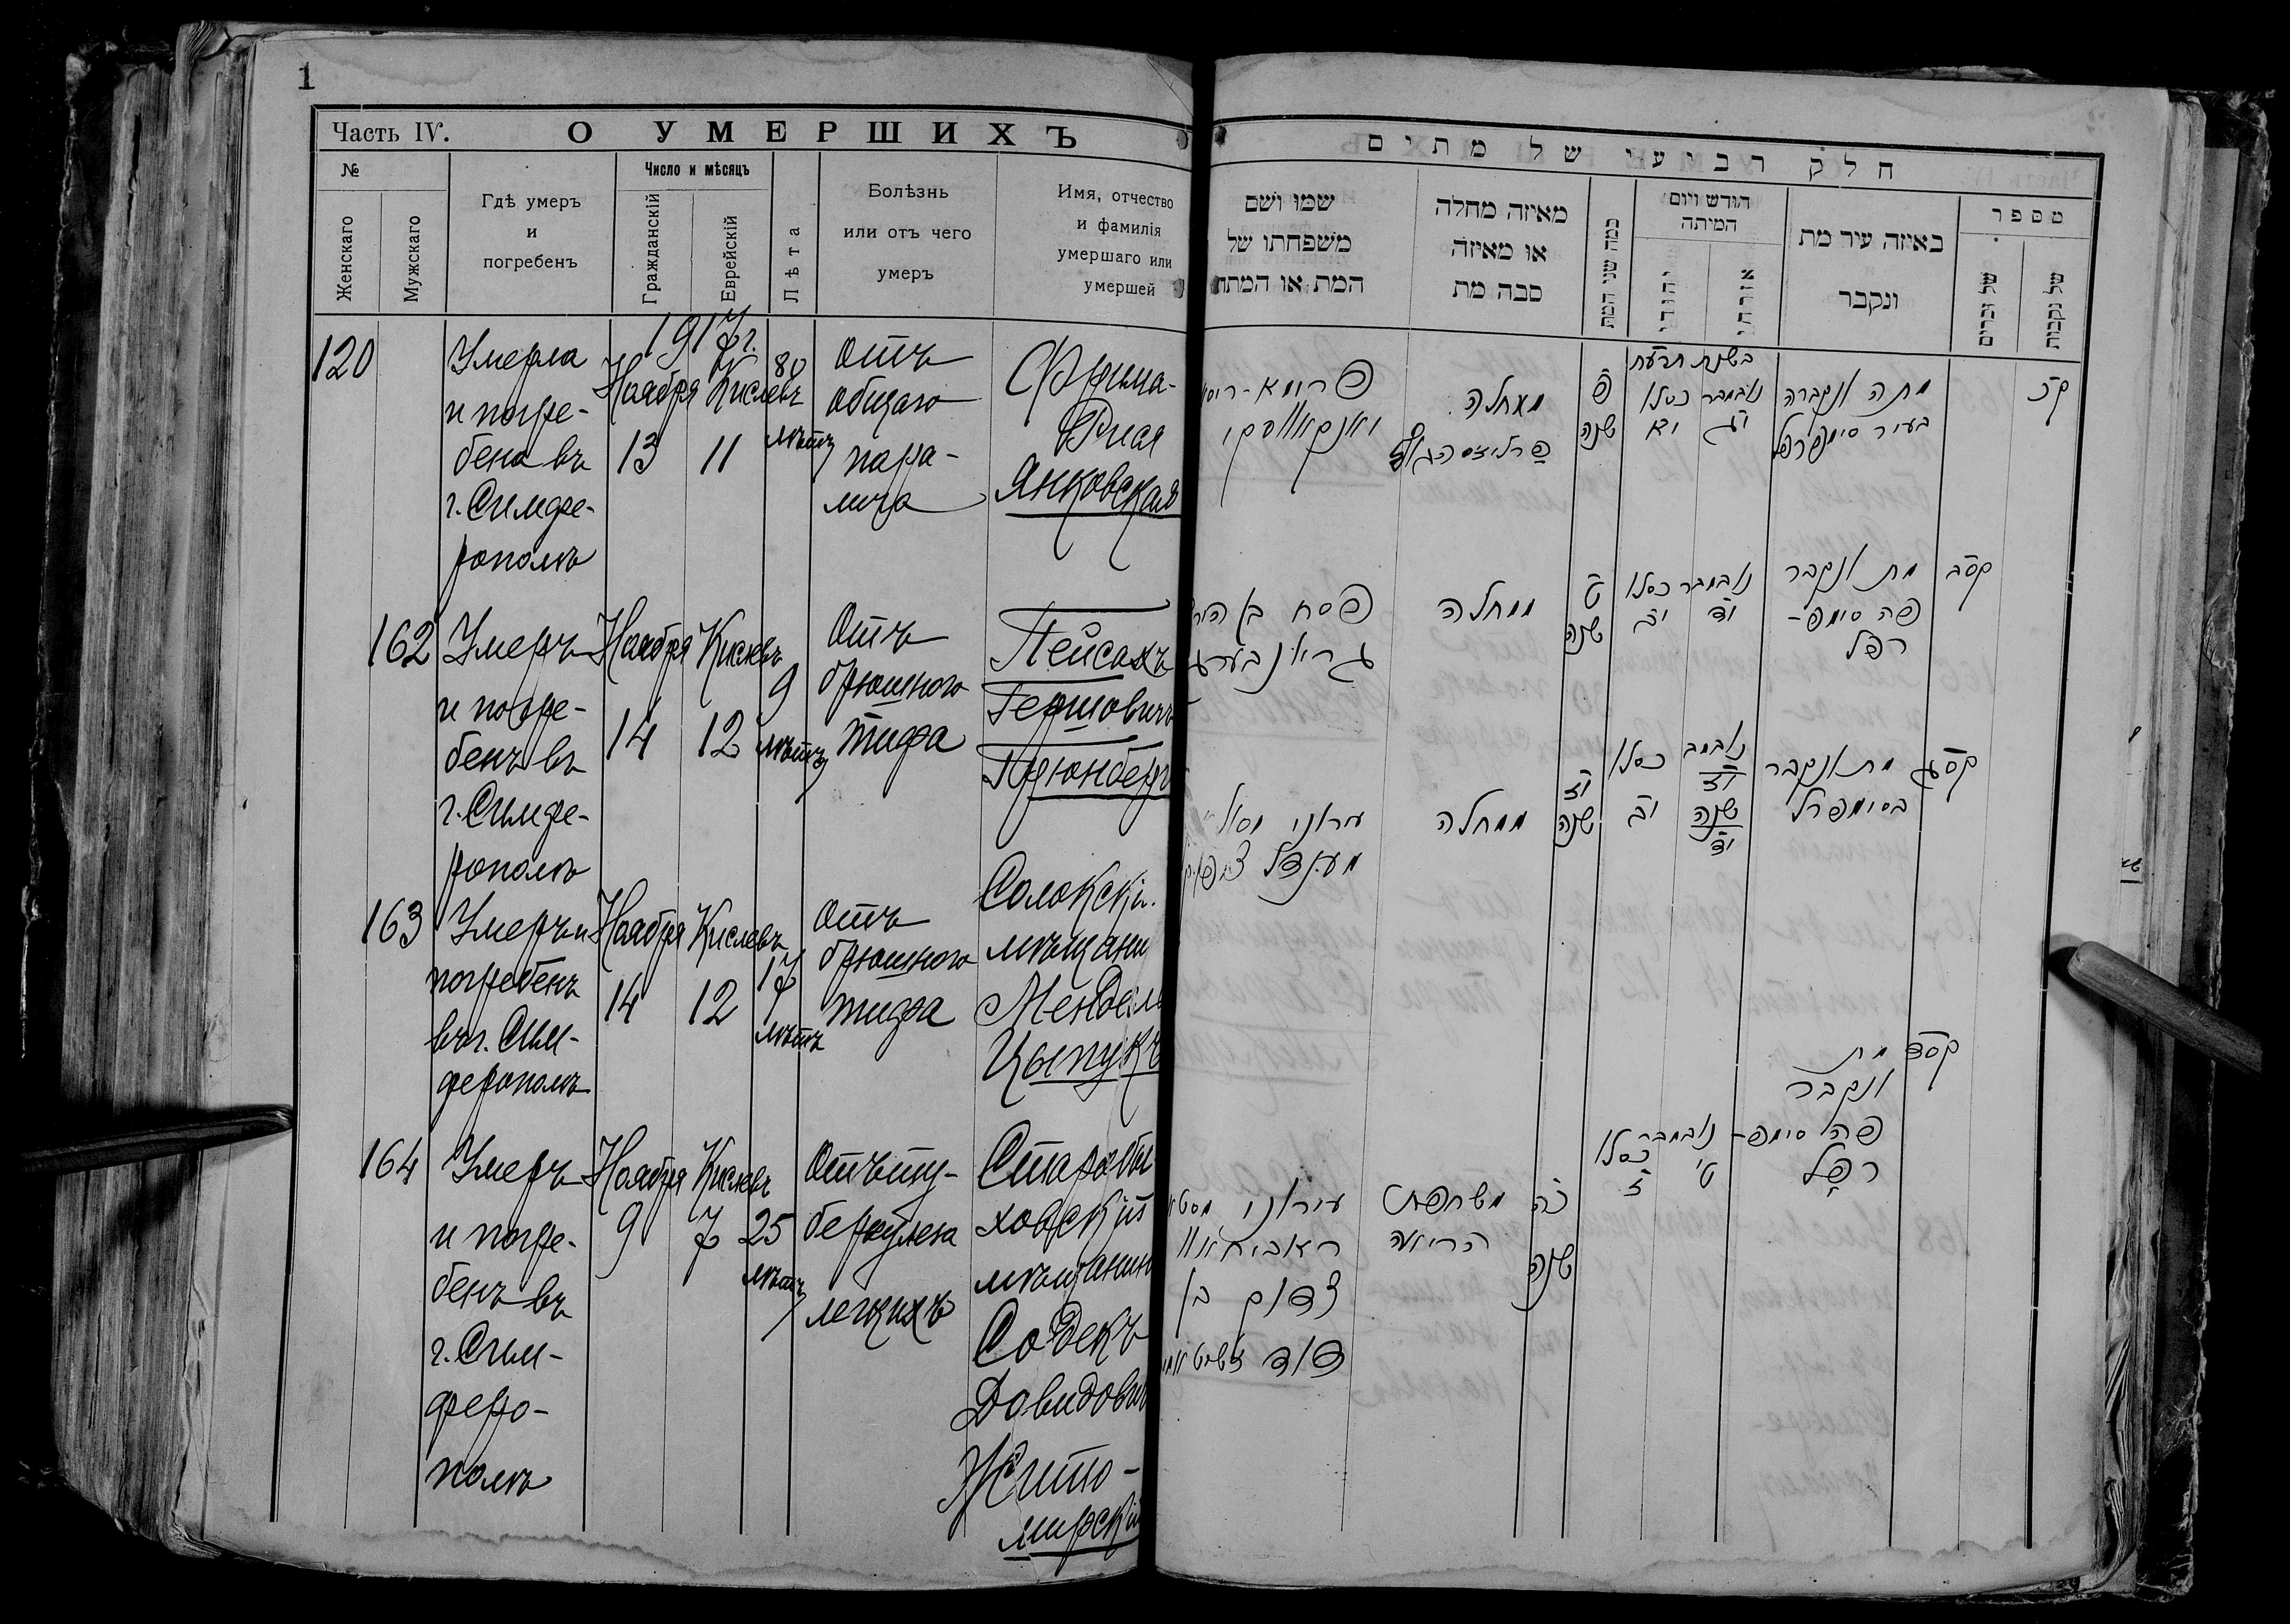 1
Часть IV. О УМЕРШИХЪ
№
Женскаго
Мужскаго
Гдѣ умеръ
и
погребенъ
Число и мѣсяцъ
Гражданскій
Еврейскій
Лѣта
Болѣзнь
или отъ чего
умеръ
Имя, отчество
и фамилія
умершаго или
умершей
1917 г.
120
Умерла
и погре-
бена въ
г. Симфе-
рополѣ
Ноября
13
Кислевъ
11
80
лѣтъ
Отъ
общаго
пара-
лича
Фрима-
Рися
Янковская
162
Умеръ
и погре-
бенъ въ
г. Симфе-
рополѣ
Ноября
14
Кислевъ
12
9
лѣтъ
Отъ
брюшного
тифа
Пейсахъ
Гершовичъ
Грюнбергъ
163
Умеръ и
погребенъ
въ г. Сим-
ферополѣ
Ноября
14
Кислевъ
12
17
лѣтъ
Отъ
брюшного
тифа
Солокскі
мѣщани
Мендель
Цыпукъ
164
Умеръ
и погре-
бенъ въ
г. Сим-
феро-
полѣ
Ноября
9
Кислевъ
7
25
лѣтъ
Отъ ту-
беркулеза
легкихъ
Старобы
ховскій
мѣщанин
Содекъ
Давидович
Жито-
мирскій
חלק רביעי של מתים
מספר
של נקבות
של זכרים
באיזה עיר מת
ונקבר
חודש ויום
המיתה
כמה שני המת
מאיזה מחלה
או מאיזה
סבה מת
שמו ושם
משפחתו של
המת או המתה
קכ
מתה ונקברה
בעיר סימפרפל
בשנת תרעח
נובמבר
יג
כסלו
יא
פ
שנה
מחלה
קסב
מת ונקבר
פה סימפ-
רפל
נובמבר
יד
כסלו
יב
ט
שנה
ממחלה
פסח בן
גרינבערג
קסג
מת ונקבר
בסימפרפל
נובמב
כסלו
יב
יז
שנה
ממחלה
מענדל
קסד
מת
ונקבר
פה סימפ-
רפל
נובמבר
ט
כסלו
ז
כה
שנה
משחפת
הריאה
צדוק בן
דוד